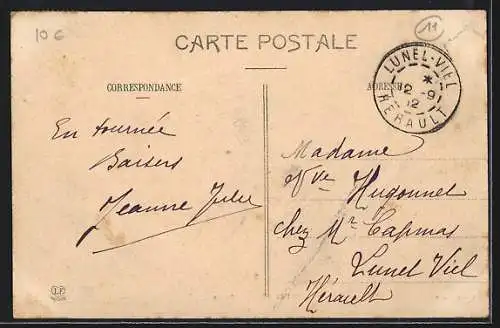 10 €
11
CARTE POSTALE
CORRESPONDANCE
ADRESSE
LUNEL-VIEL
* 
12 -9
12
HERAULT
En tournée
Baisers
Jeanne Julie
Madame
Vve Hugonnet
chez Mr Capmas
Lunel Viel
Hérault